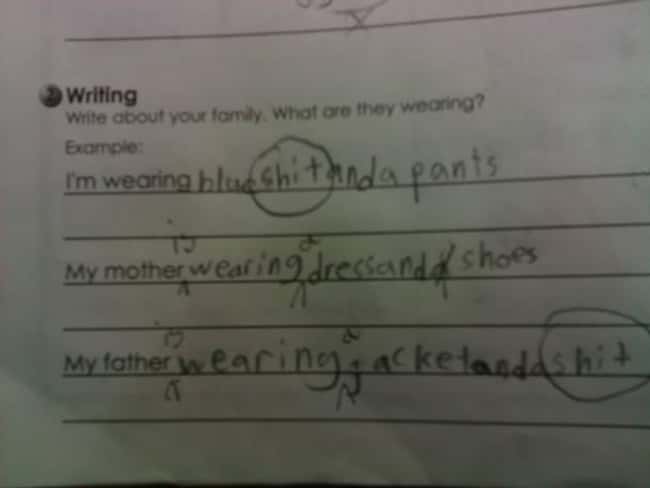 2 Writing
Write about your family. What are they wearing?
Example:
I'm wearing blue shit and a pants
is a
My mother wearing dress and a shoes
is a
My father wearing jacket and a shit